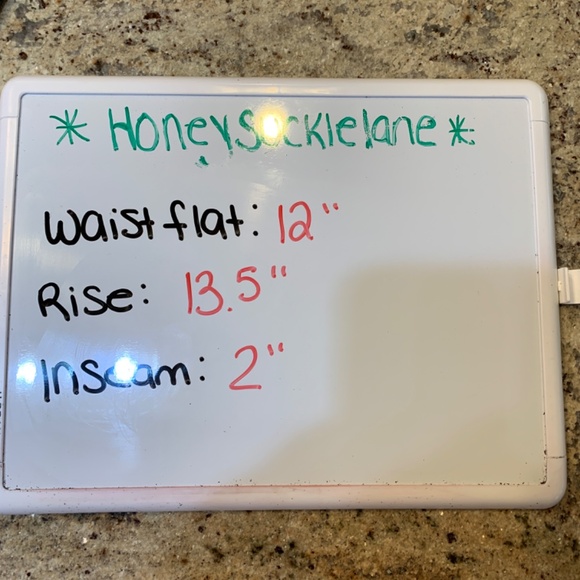 * HoneySocklelane *
Waist flat: 12"
Rise: 13.5"
Inseam: 2"